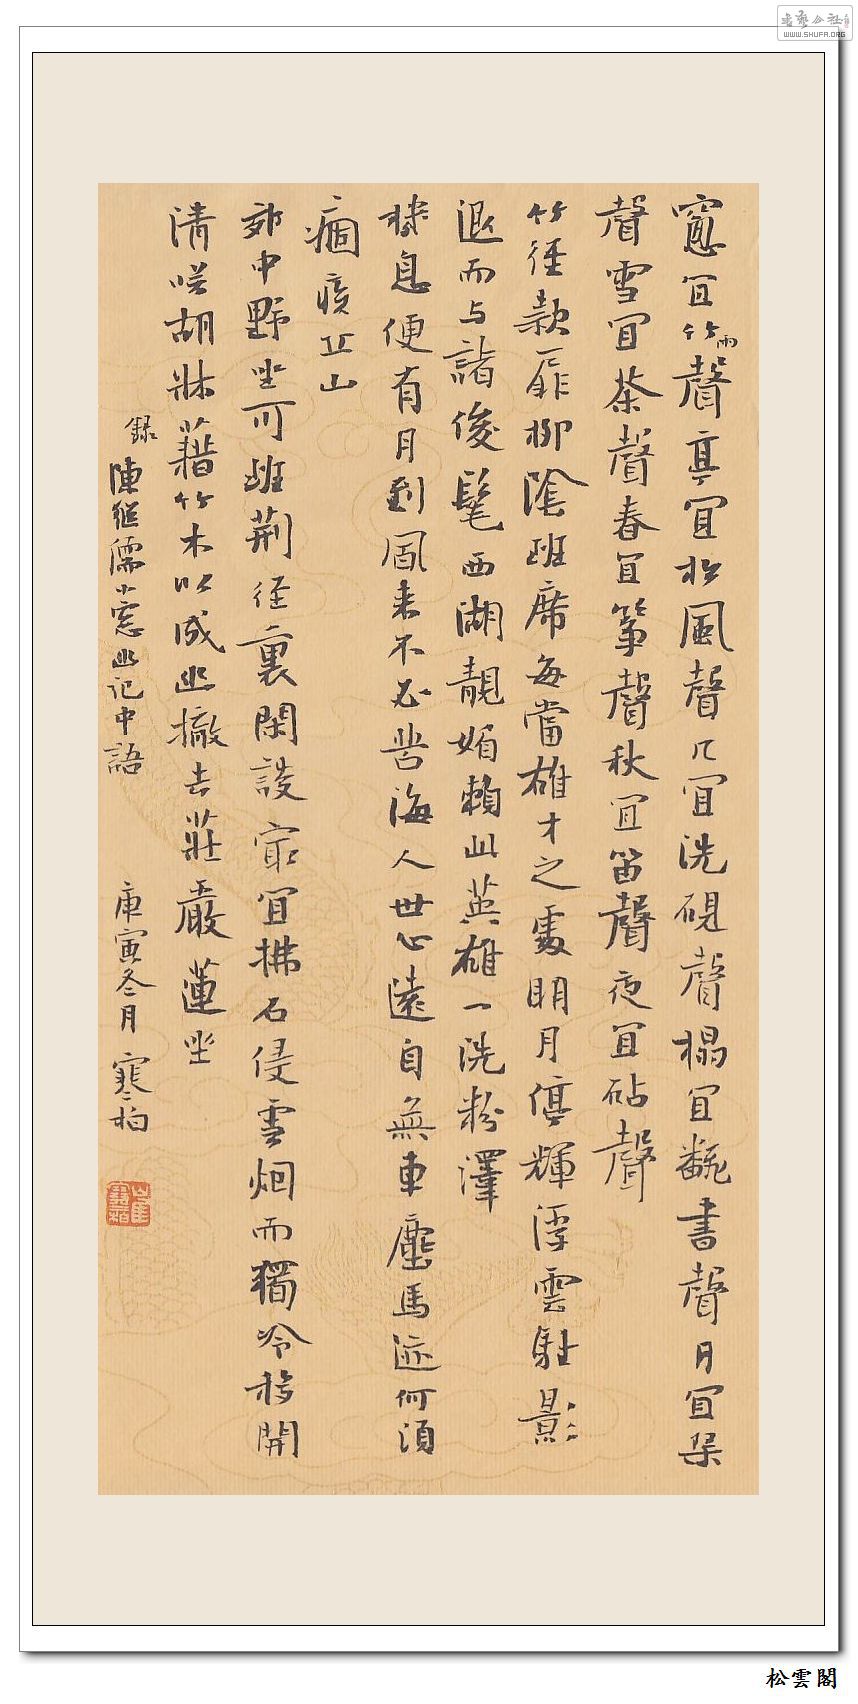 窻宜竹雨聲亭宜松風聲几宜洗硯聲榻宜翻書聲月宜琴
聲雪宜茶聲春宜箏聲秋宜笛聲夜宜砧聲
竹徑款扉柳陰班席每當雄才之處明月停輝浮雲駐影
退而与諸俊髦西湖靚媚賴此英雄一洗粉澤
機息便有月到風来不必苦海人世心遠自無車塵馬迹何須
痼疾丘山
郊中野坐可班荊徑裏閑談最宜拂石侵雲烟而獨冷移開
清咲胡牀藉竹木以成幽撤去莊嚴蓮坐
録陳継儒小窓幽记中語 庚寅冬月 寒柏
崔寒柏
書藝公社
WWW.SHUFA.ORG
松雲閣